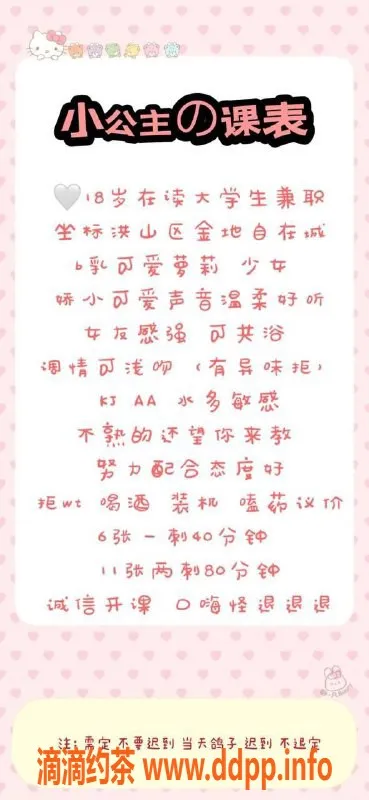 小公主の课表
🤍18岁在读大学生兼职
坐标洪山区金地自在城
b乳可爱萝莉 少女
娇小可爱声音温柔好听
女友感强 可共浴
调情可浅吻（有异味拒）
KJ AA 水多敏感
不熟的还望你来教
努力配合态度好
拒wt 喝酒 装机 嗑药议价
6张一刺40分钟
11张两刺80分钟
诚信开课 口嗨怪退退退
注：需定 不要迟到 当天鸽子 迟到 不退定
滴滴约茶 www.ddpp.info